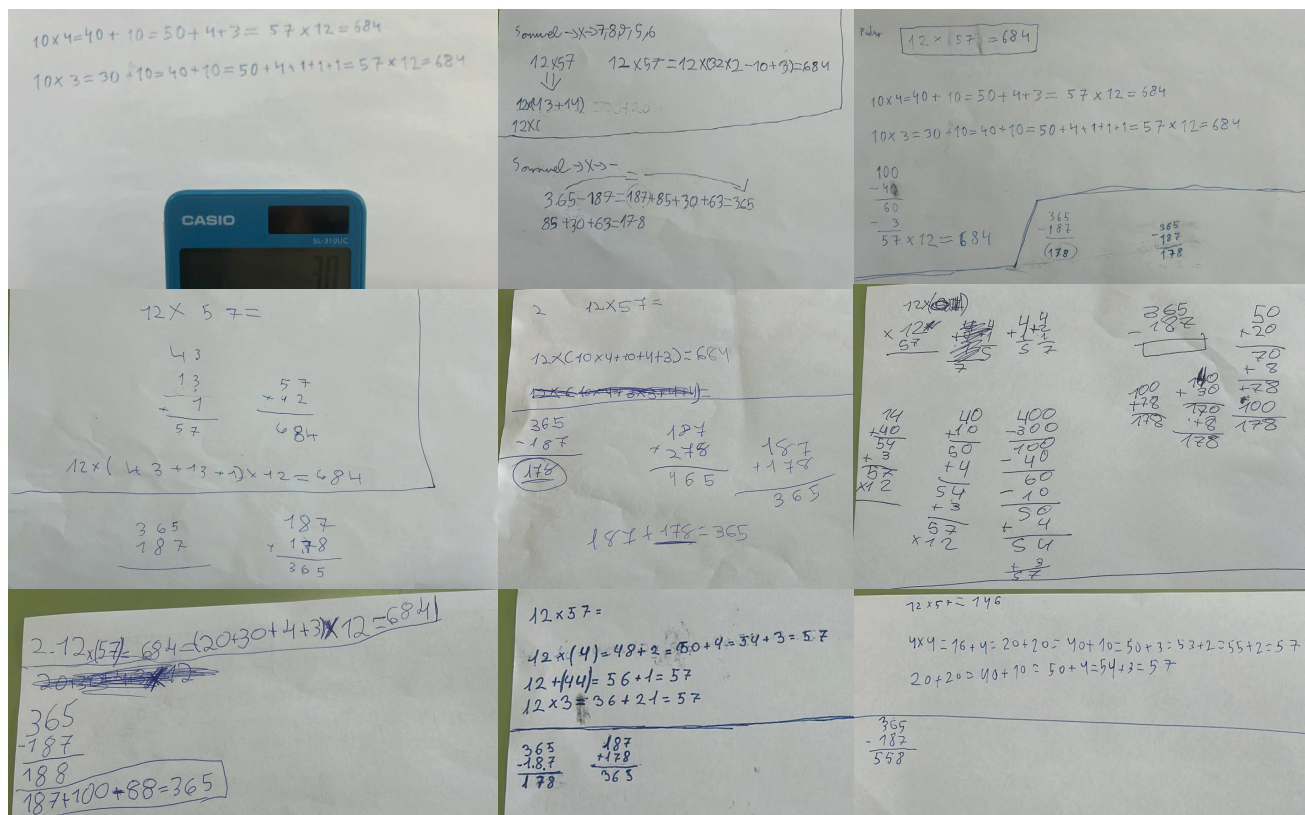 10×4=40+10=50+4+3= 57×12=684
10×3=30+10=40+10=50+4+1+1+1=57×12=684
CASIO
SL-310UC
30
Samuel→X→7,8,9,5,6
12×57 12×57=12×(32×2-10+3)=684
12×(43+14)
12×(
Sammuel→X→-
365-187=187+85+30+63=365
85+30+63=178
12×(57)=684
10×4=40+10=50+4+3= 57×12=684
10×3=30+10=40+10=50+4+1+1+1=57×12=684
100
-40
60
-3
57×12=684
365
-187
(178)
365
-187
178
12×57=
43
13
+1
57
57
×12
684
12×(43+13+1)×12=684
365
187
187
+178
365
2 12×57=
12×(10×4+10+4+3)=684
365
-187
178
187
+278
465
187
+178
365
187+178=365
12×(
×12
57
5
7
44
+12
1
57
365
-187
50
+20
70
+8
+78
100
178
100
+78
178
140
+30
170
+8
178
14
+40
54
+3
57
×12
40
+10
50
+4
54
+3
57
×12
400
-300
100
-40
60
-10
50
+4
54
+3
57
2.12×(57)=684=(20+30+4+3)×12=684
365
-187
188
187+100+88=365
12×57=
12×(4)=48+2=50+4=54+3=57
12+(44)=56+1=57
12×3=36+21=57
365
-187
178
187
+178
365
12×57=146
4×4=16+4=20+20=40+10=50+3=53+2=55+2=57
20+20=40+10=50+4=54+3=57
365
-187
558